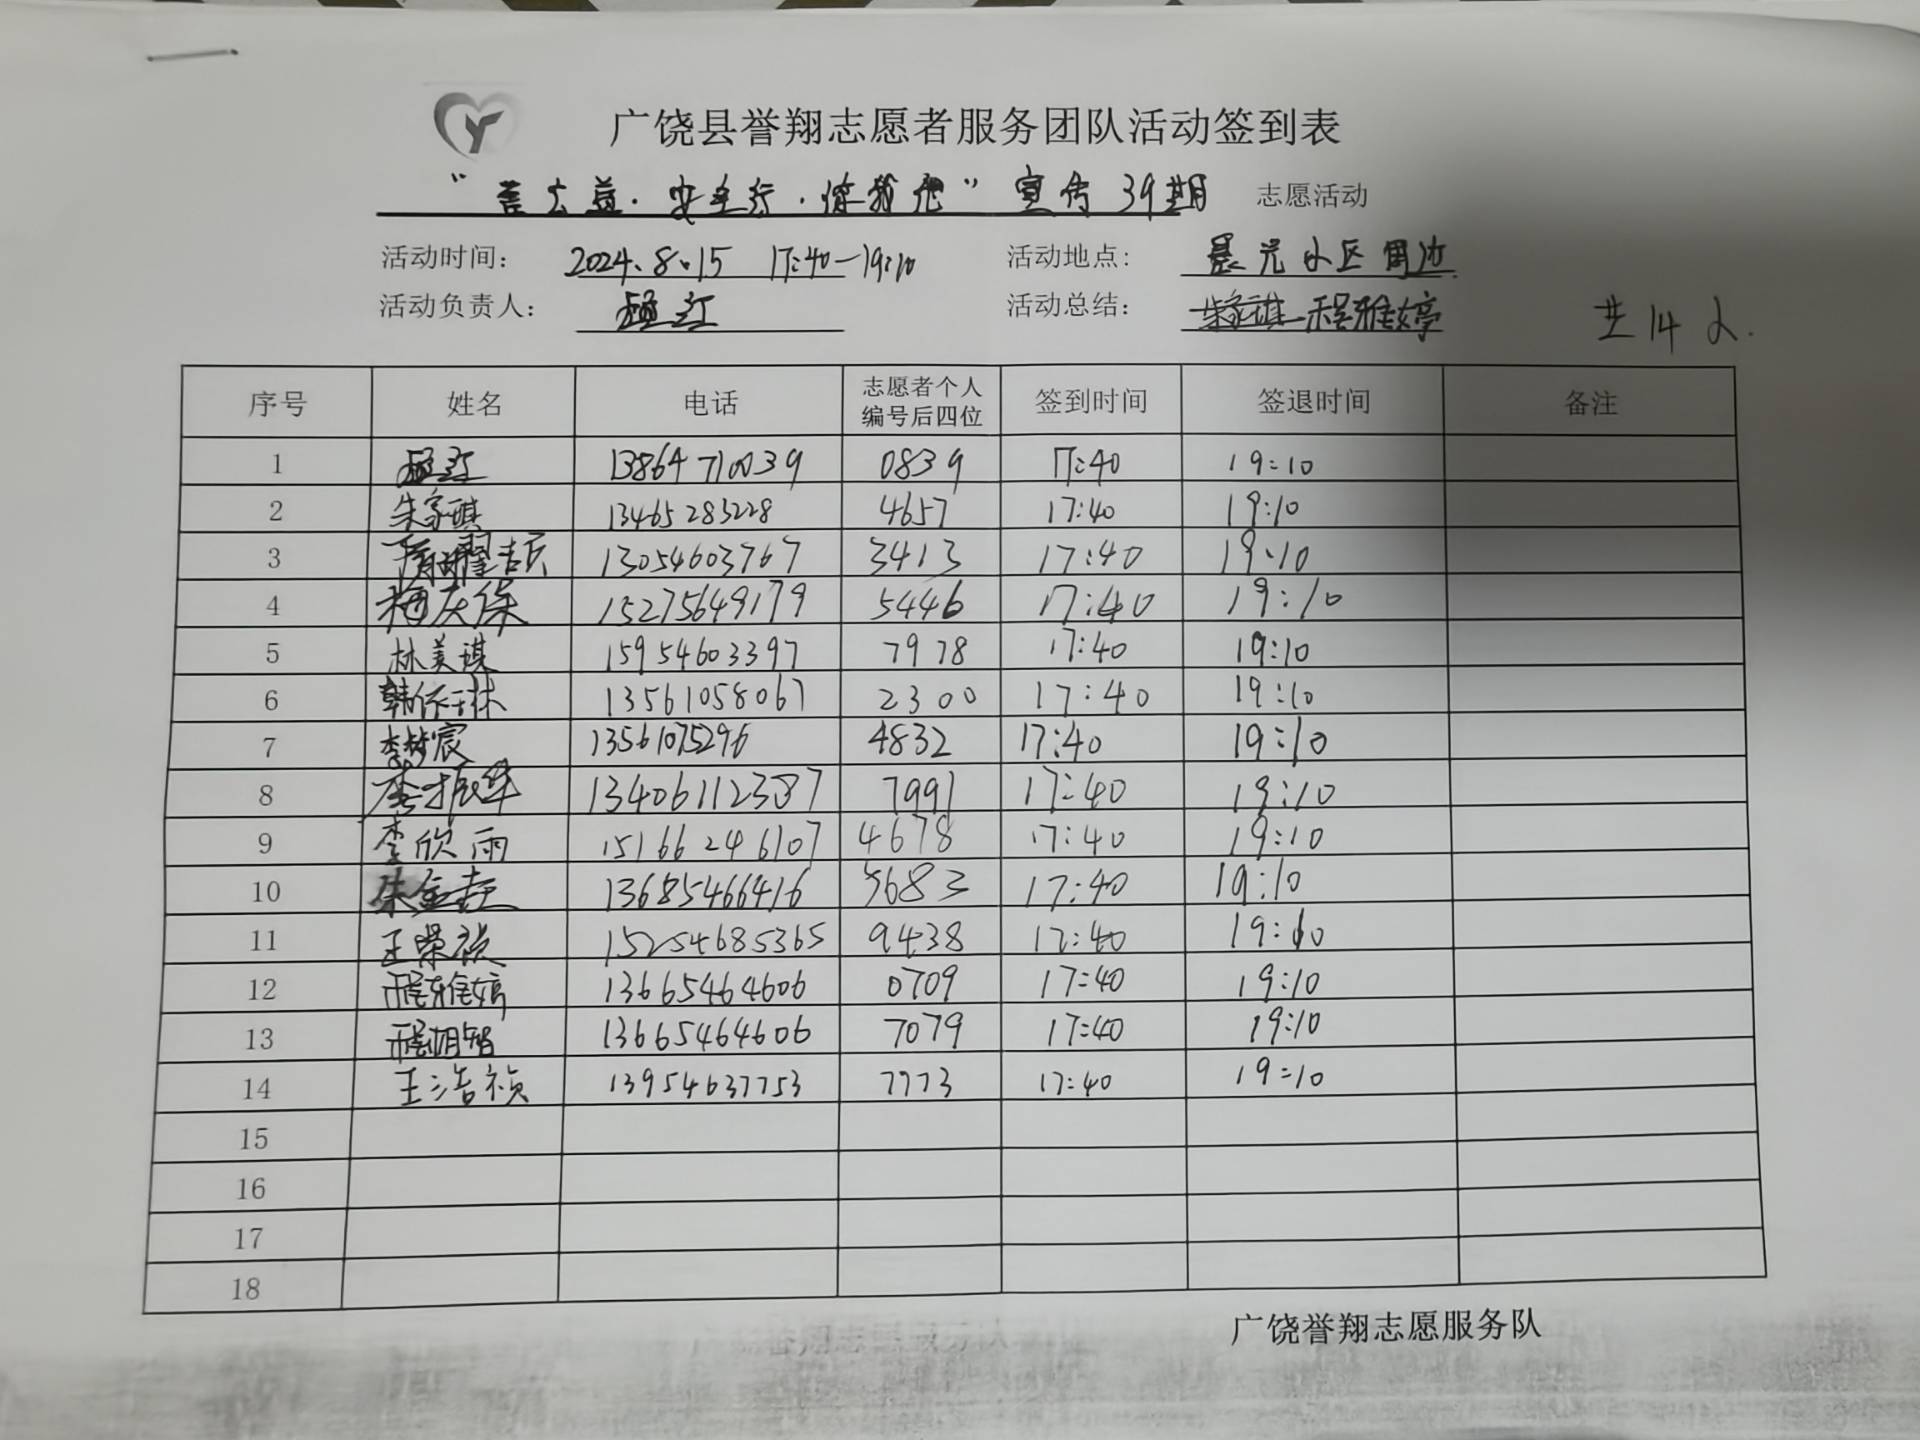 广饶县誉翔志愿者服务团队活动签到表
宣传 39期 志愿活动
活动时间： 2024.8.15 17:40-19:10 活动地点： 晨光小区周边
活动负责人： 活动总结： 朱家琪 程雅婷
共14人.
序号 姓名 电话 志愿者个人编号后四位 签到时间 签退时间 备注
1 13864710039 0839 17:40 19:10
2 朱家琪 13465283228 4657 17:40 19:10
3 13054603767 3413 17:40 19:10
4 梅庆保 15275649179 5446 17:40 19:10
5 林美琪 15954603397 7978 17:40 19:10
6 韩依琳 13561058067 2300 17:40 19:10
7 李梦宸 13561075296 4832 17:40 19:10
8 李振华 13406112387 7991 17:40 19:10
9 李欣雨 15166246107 4678 17:40 19:10
10 13685466416 5683 17:40 19:10
11 王荣祯 15254685365 9438 17:40 19:10
12 程雅婷 13665464606 0709 17:40 19:10
13 程相智 13665464606 7079 17:40 19:10
14 王浩祯 13954637753 7773 17:40 19:10
15
16
17
18
广饶誉翔志愿服务队